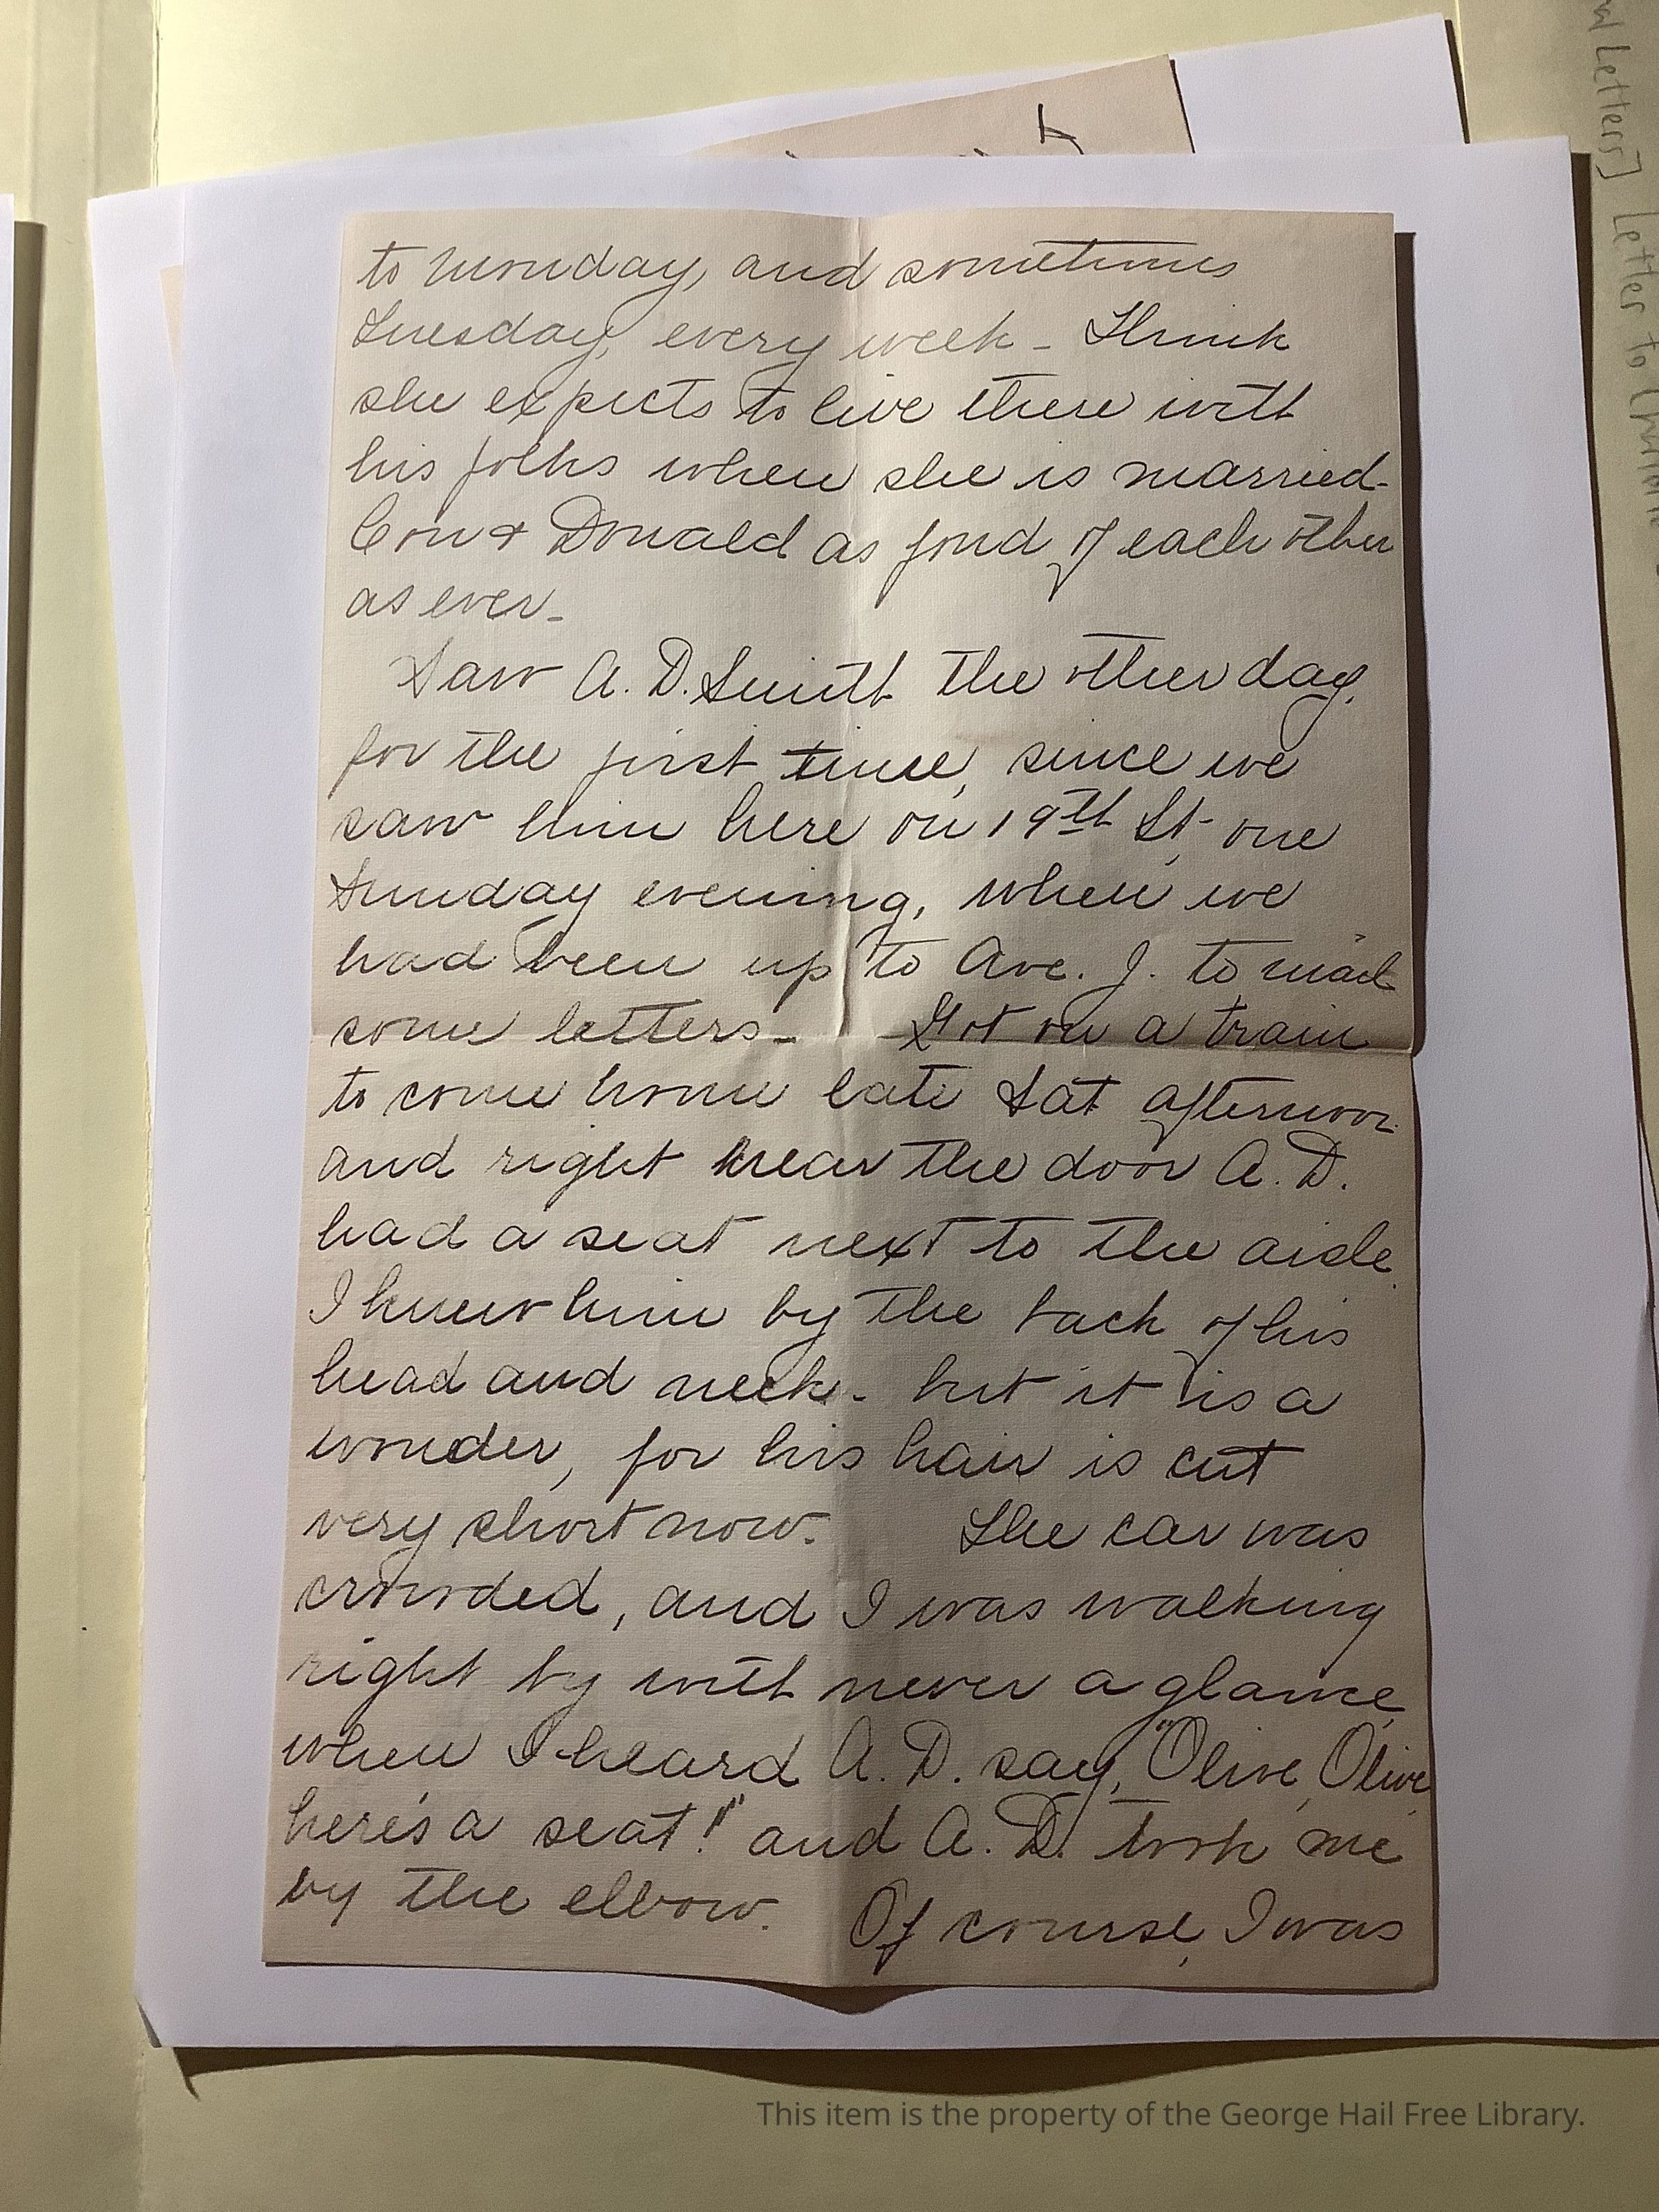 al Letters] Letter to
to Monday, and sometimes
Tuesday, every week - Think
she expects to live there with
his folks when she is married-
Con & Donald as fond of each other
as ever -
Saw A. D. Smith the other day,
for the first time, since we
saw him here on 19th St, one
Sunday evening, when we
had been up to Ave. J. to mail
some letters - Got on a train
to come home late Sat afternoon
and right near the door A. D.
had a seat next to the aisle.
I knew him by the back of his
head and neck - but it is a
wonder, for his hair is cut
very short now. The car was
crowded, and I was walking
right by with never a glance,
when I heard A. D. say, "Olive, Olive,
here's a seat!" and A. D. took me
by the elbow. Of course, I was
This item is the property of the George Hail Free Library.